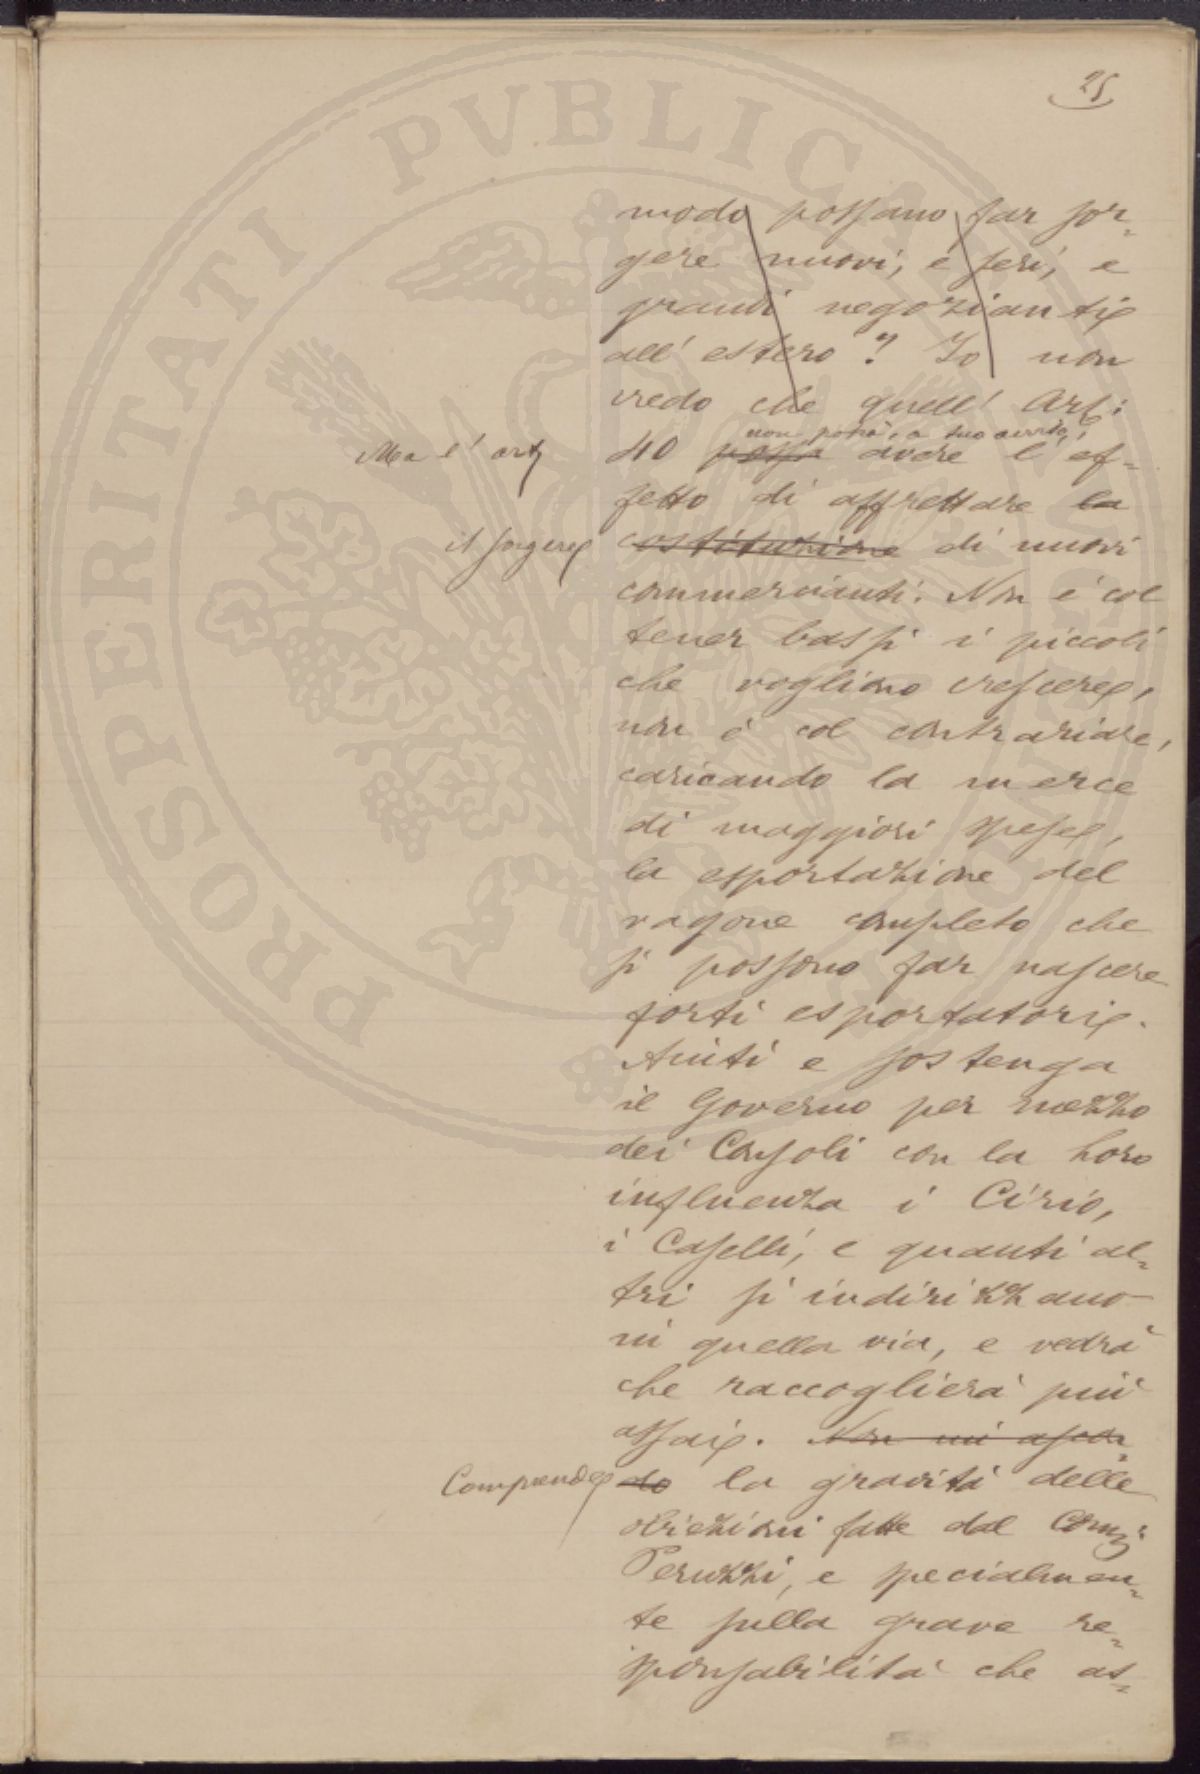 25
modo possano far sor=
gere nuovi, e seri, e
grandi negozianti
all'estero? Io non
credo che quell'Art:
Ma l'art
non potrà, a suo avviso,
40 possa avere l'ef=
fetto di affrettare la
il sorgere
costituzione di nuovi
commercianti. Non è col
tener bassi i piccoli
che vogliono crescere,
non è col contrariare,
caricando la merce
di maggiori spese,
la esportazione del
vagone completo che
si possono far nascere
forti esportatori.
Aiuti e sostenga
il Governo per mezzo
dei Consoli con la loro
influenza i Cirio,
i Caselli, e quanti al=
tri si indirizzano
in quella via, e vedrà
che raccoglierà più
assai. Non mi ascon=
Comprende
do la gravità delle
obiezioni fatte dal Comm:
Peruzzi, e specialmen=
te sulla grave re=
sponsabilità che as=
PROSPERITATI PVBLICAE